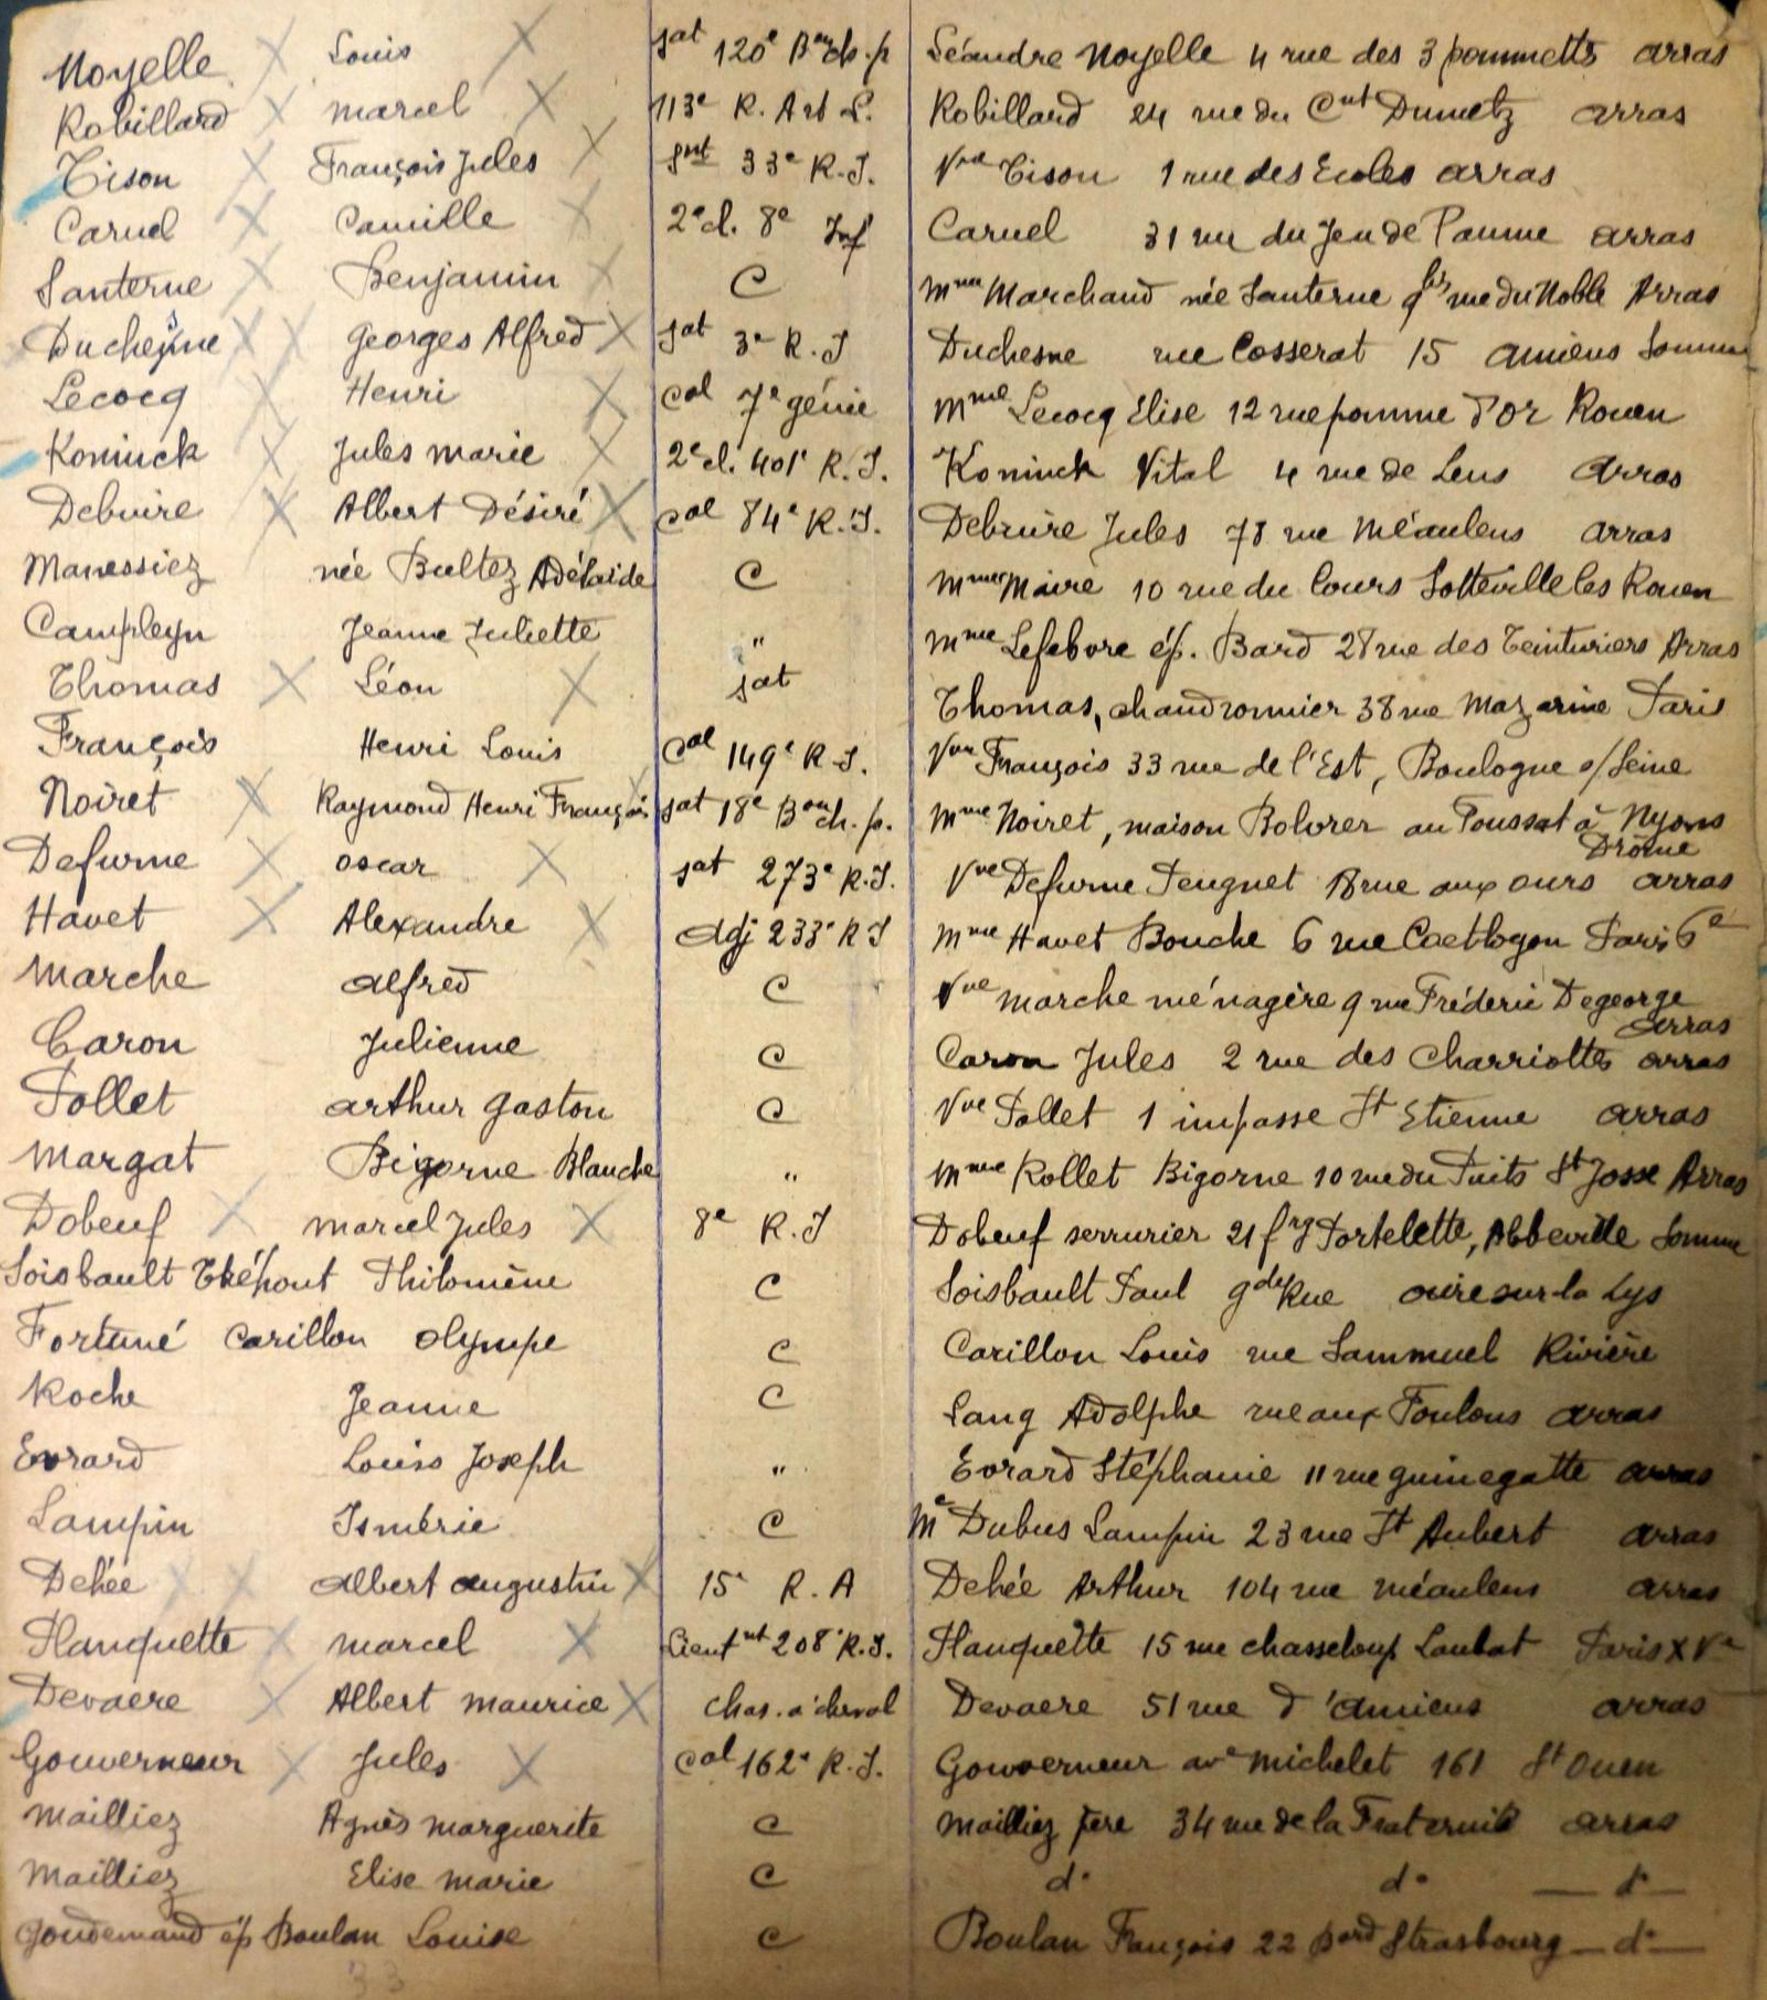 Noyelle Louis sat 120e Bon ch. p Léandre Noyelle 4 rue des 3 pommetts arras
Robillard marcel 113e R. Art L. Robillard 24 rue du Cnt Dumetz arras
Tison François Jules snt 33e R.I. Vve Tison 1 rue des Ecoles arras
Caruel Camille 2e cl. 8e Inf Caruel 31 rue du Jeu de Paume arras
Santerne Benjamin C Mme Marchand née Santerne 9 bis rue du Noble Arras
Duchesne Georges Alfred sat 3e R.I Duchesne rue Cosserat 15 amiens Somme
Lecocq Henri Cal 7e génie Mme Lecocq Elise 12 rue pomme d'or Rouen
Koninck Jules marie 2e cl. 401e R.I. Koninck Vital 4 rue de Lens arras
Debuire Albert Désiré Cal 84e R.I. Debuire Jules 78 rue Méaulens arras
Manessiez née Bultez Adélaide C Mme Maire 10 rue du Cours Sotteville les Rouen
Campleyn Jeanne Juliette " Mme Lefebvre ép. Bard 28 rue des Teinturiers Arras
Thomas Léon sat Thomas, chaudronnier 38 rue Mazarine Paris
François Henri Louis Cal 149e R.I. Vve François 33 rue de l'Est, Boulogne s/Seine
Noiret Raymond Henri François sat 18e Bon ch. p. Mme Noiret, maison Bolvrer au Poussat à Nyons
Drôme
Defurne oscar sat 273e R.I. Vve Defurne Peugnet 18 rue aux ours arras
Havet Alexandre adj 233e R I Mme Havet Bouche 6 rue Coetlogon Paris 6e
Marche alfred C Vve marche ménagère 9 rue Fréderic Degeorge
arras
Caron Julienne C Caron Jules 2 rue des Charriottes arras
Pollet arthur gaston C Vve Pollet 1 impasse St Etienne arras
Margat Bigorne Blanche " Mme Rollet Bigorne 10 rue du Puits St Josse Arras
Dobeuf marcel Jules 8e R.I Dobeuf serrurier 21 fbg Portelette, Abbeville Somme
Soisbault Philomène C Soisbault Paul gde Rue aire sur la Lys
Fortuné Carillon olympe C Carillon Louis rue Sammuel Rivière
Roche Jeanne C Lang Adolphe rue aux Foulons arras
Evrard Louis Joseph " Evrard Stéphanie 11 rue guinegatte arras
Lampin Ismérie C Me Dubus Lampin 23 rue St Aubert arras
Dehée albert augustin 15e R.A Dehée Arthur 104 rue méaulens arras
Planquette marcel Lieutnt 208e R.I. Planquette 15 rue chasseloup Laubat Paris XVe
Devaere Albert maurice chas. à cheval Devaere 51 rue d'amiens arras
Gouverneur Jules Cal 162e R.I. Gouverneur ave michelet 161 St Ouen
Mailliez Agnès marguerite C mailliez père 34 rue de la Fraternité arras
Mailliez Elise marie C do do — do —
Goudemand ép Boulan Louise C Boulan François 22 Bard Strasbourg — do —